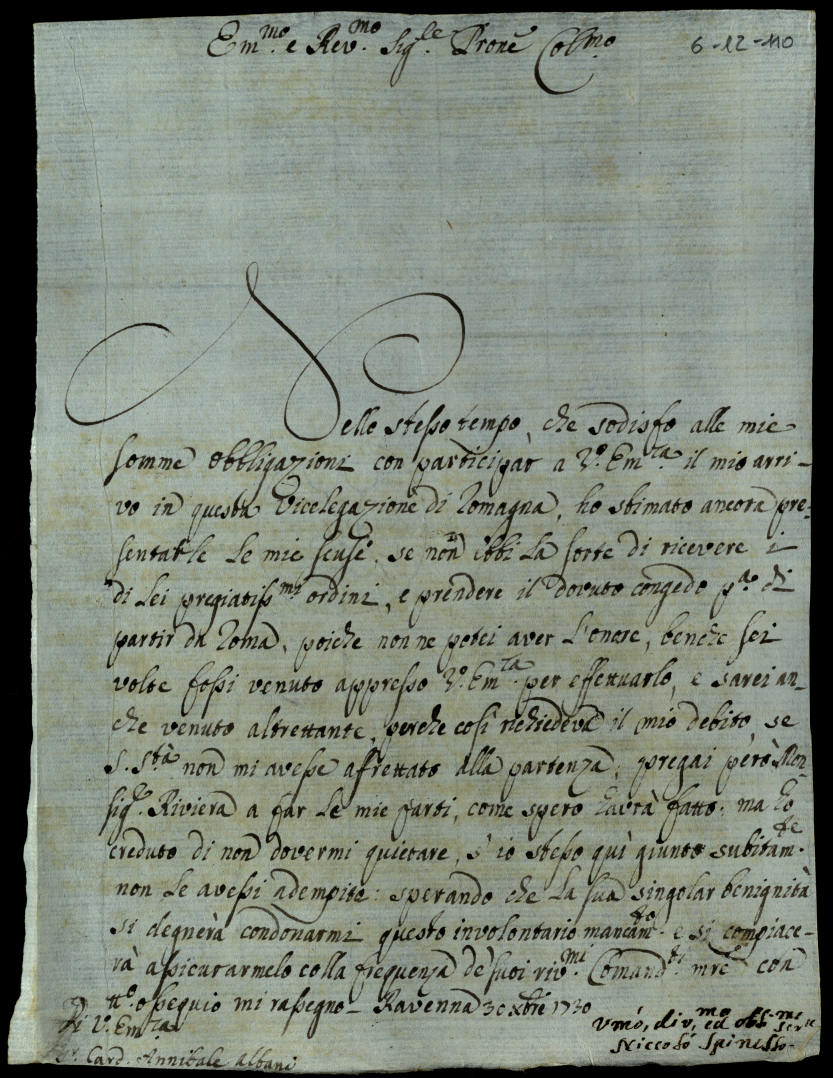 Em.mo e Rev.mo Sig.re Prone Col.mo
6-12-110
Nello stesso tempo, che sodisfo alle mie
somme obbligazioni con participar a V. Em.za il mio arri-
vo in questa Vicelegazione di Romagna, ho stimato ancora pre-
sentarle le mie scuse, se non ebbi la sorte di ricevere i
di lei pregiatiss.mi ordini, e prendere il dovuto congedo p.a di
partir da Roma, poiche non ne potei aver l'onore, benche sei
volte fossi venuto appresso V. Em.za per effettuarlo, e sarei an-
che venuto altrettante, perche così richiedeva il mio debito, se
S. Stà non mi avesse affrettato alla partenza; pregai però Mon-
sig.r Riviera a far le mie parti, come spero havrà fatto; ma ho
creduto di non dovermi quietare, s'io stesso quì giunto subitam.te
non le avessi adempite: sperando che la sua singolar benignità
si degnerà condonarmi questo involontario mancam.to e si compiace-
rà assicurarmelo colla frequenza de' suoi riv.mi Comand.ti mre con
tt.o ossequio mi rassegno - Ravenna 3 xbre 1730
Di V. Em.za
Sr. Card. Annibale Albani
Vmo, div.mo, ed obb.mo Serv.
Niccolò Spinello